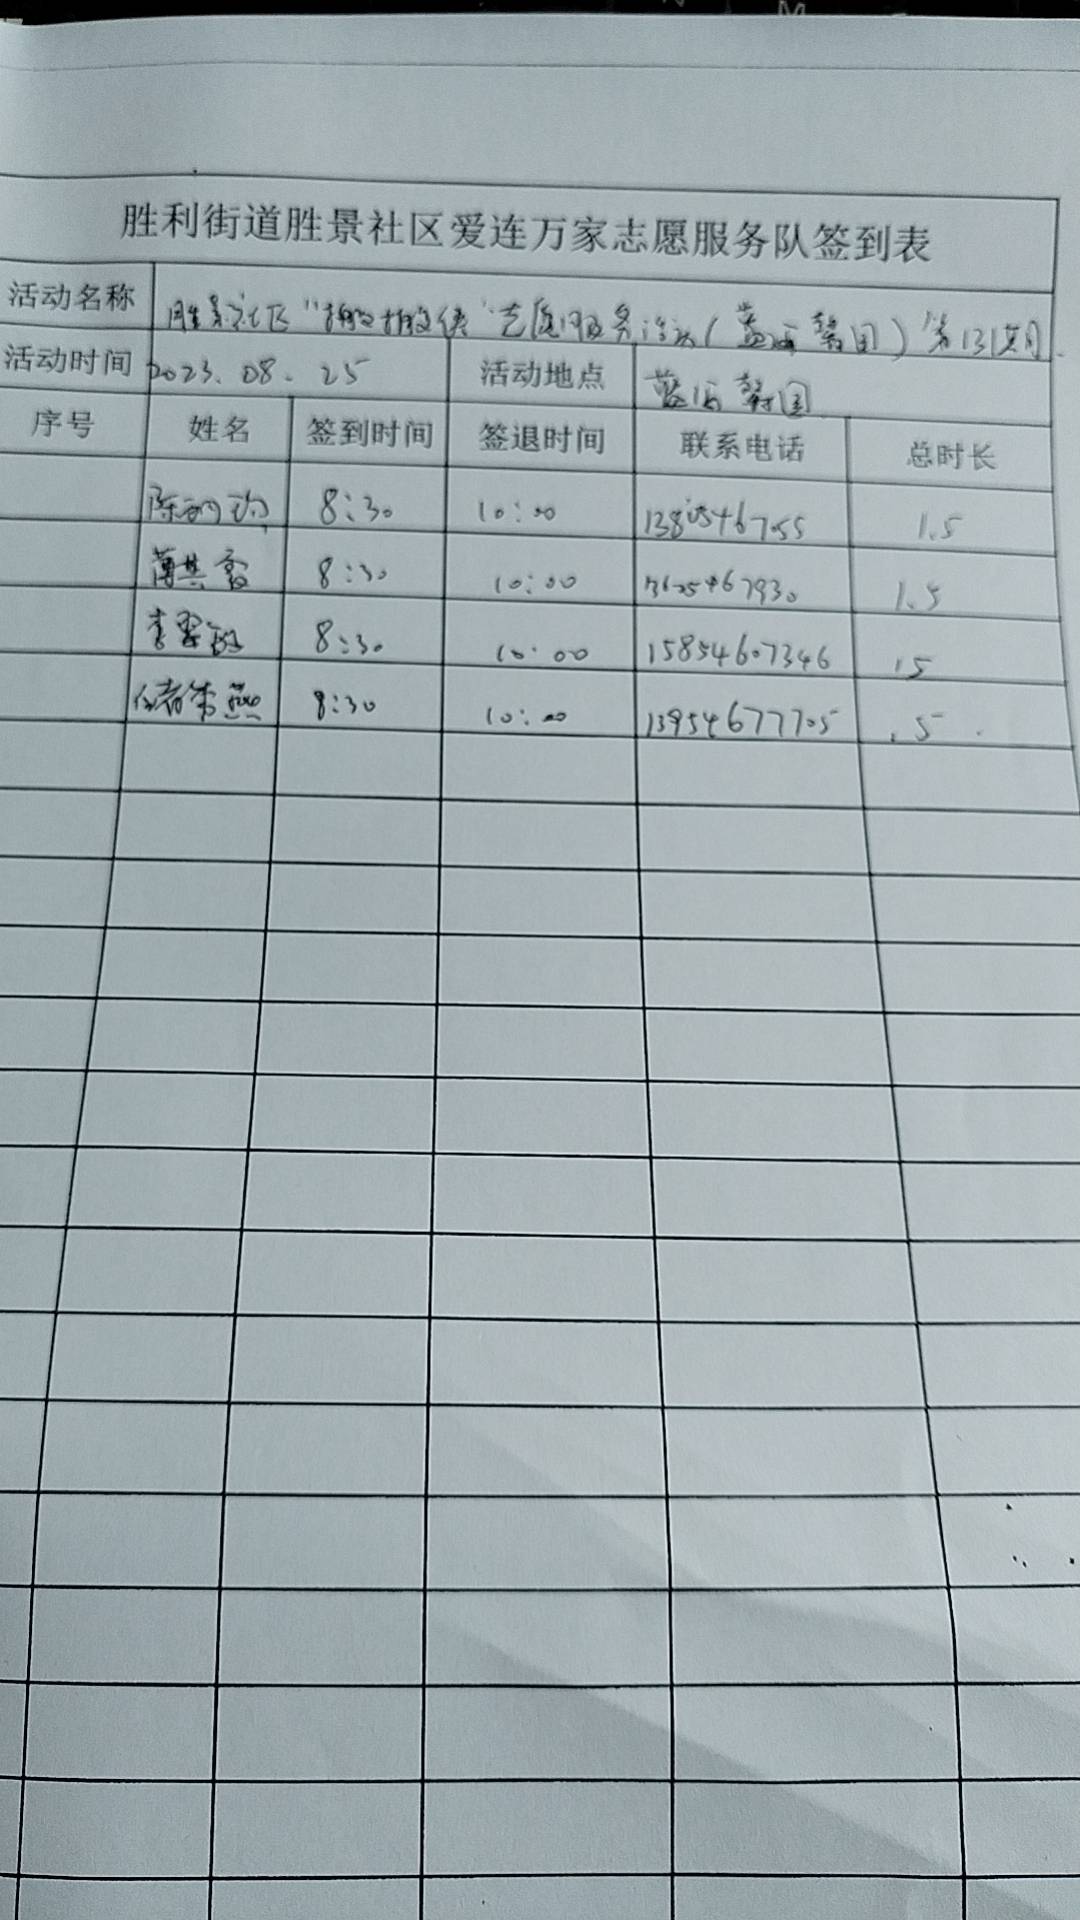 胜利街道胜景社区爱连万家志愿服务队签到表
活动名称 胜景社区“撤撤侠”志愿服务活动(蓝海馨园)第131期
活动时间 2023.08.25 活动地点 蓝海馨园
序号 姓名 签到时间 签退时间 联系电话 总时长
8:30 10:00 13805467055 1.5
8:30 10:00 13625467930 1.5
8:30 10:00 15854607346 1.5
8:30 10:00 13954677705 .5